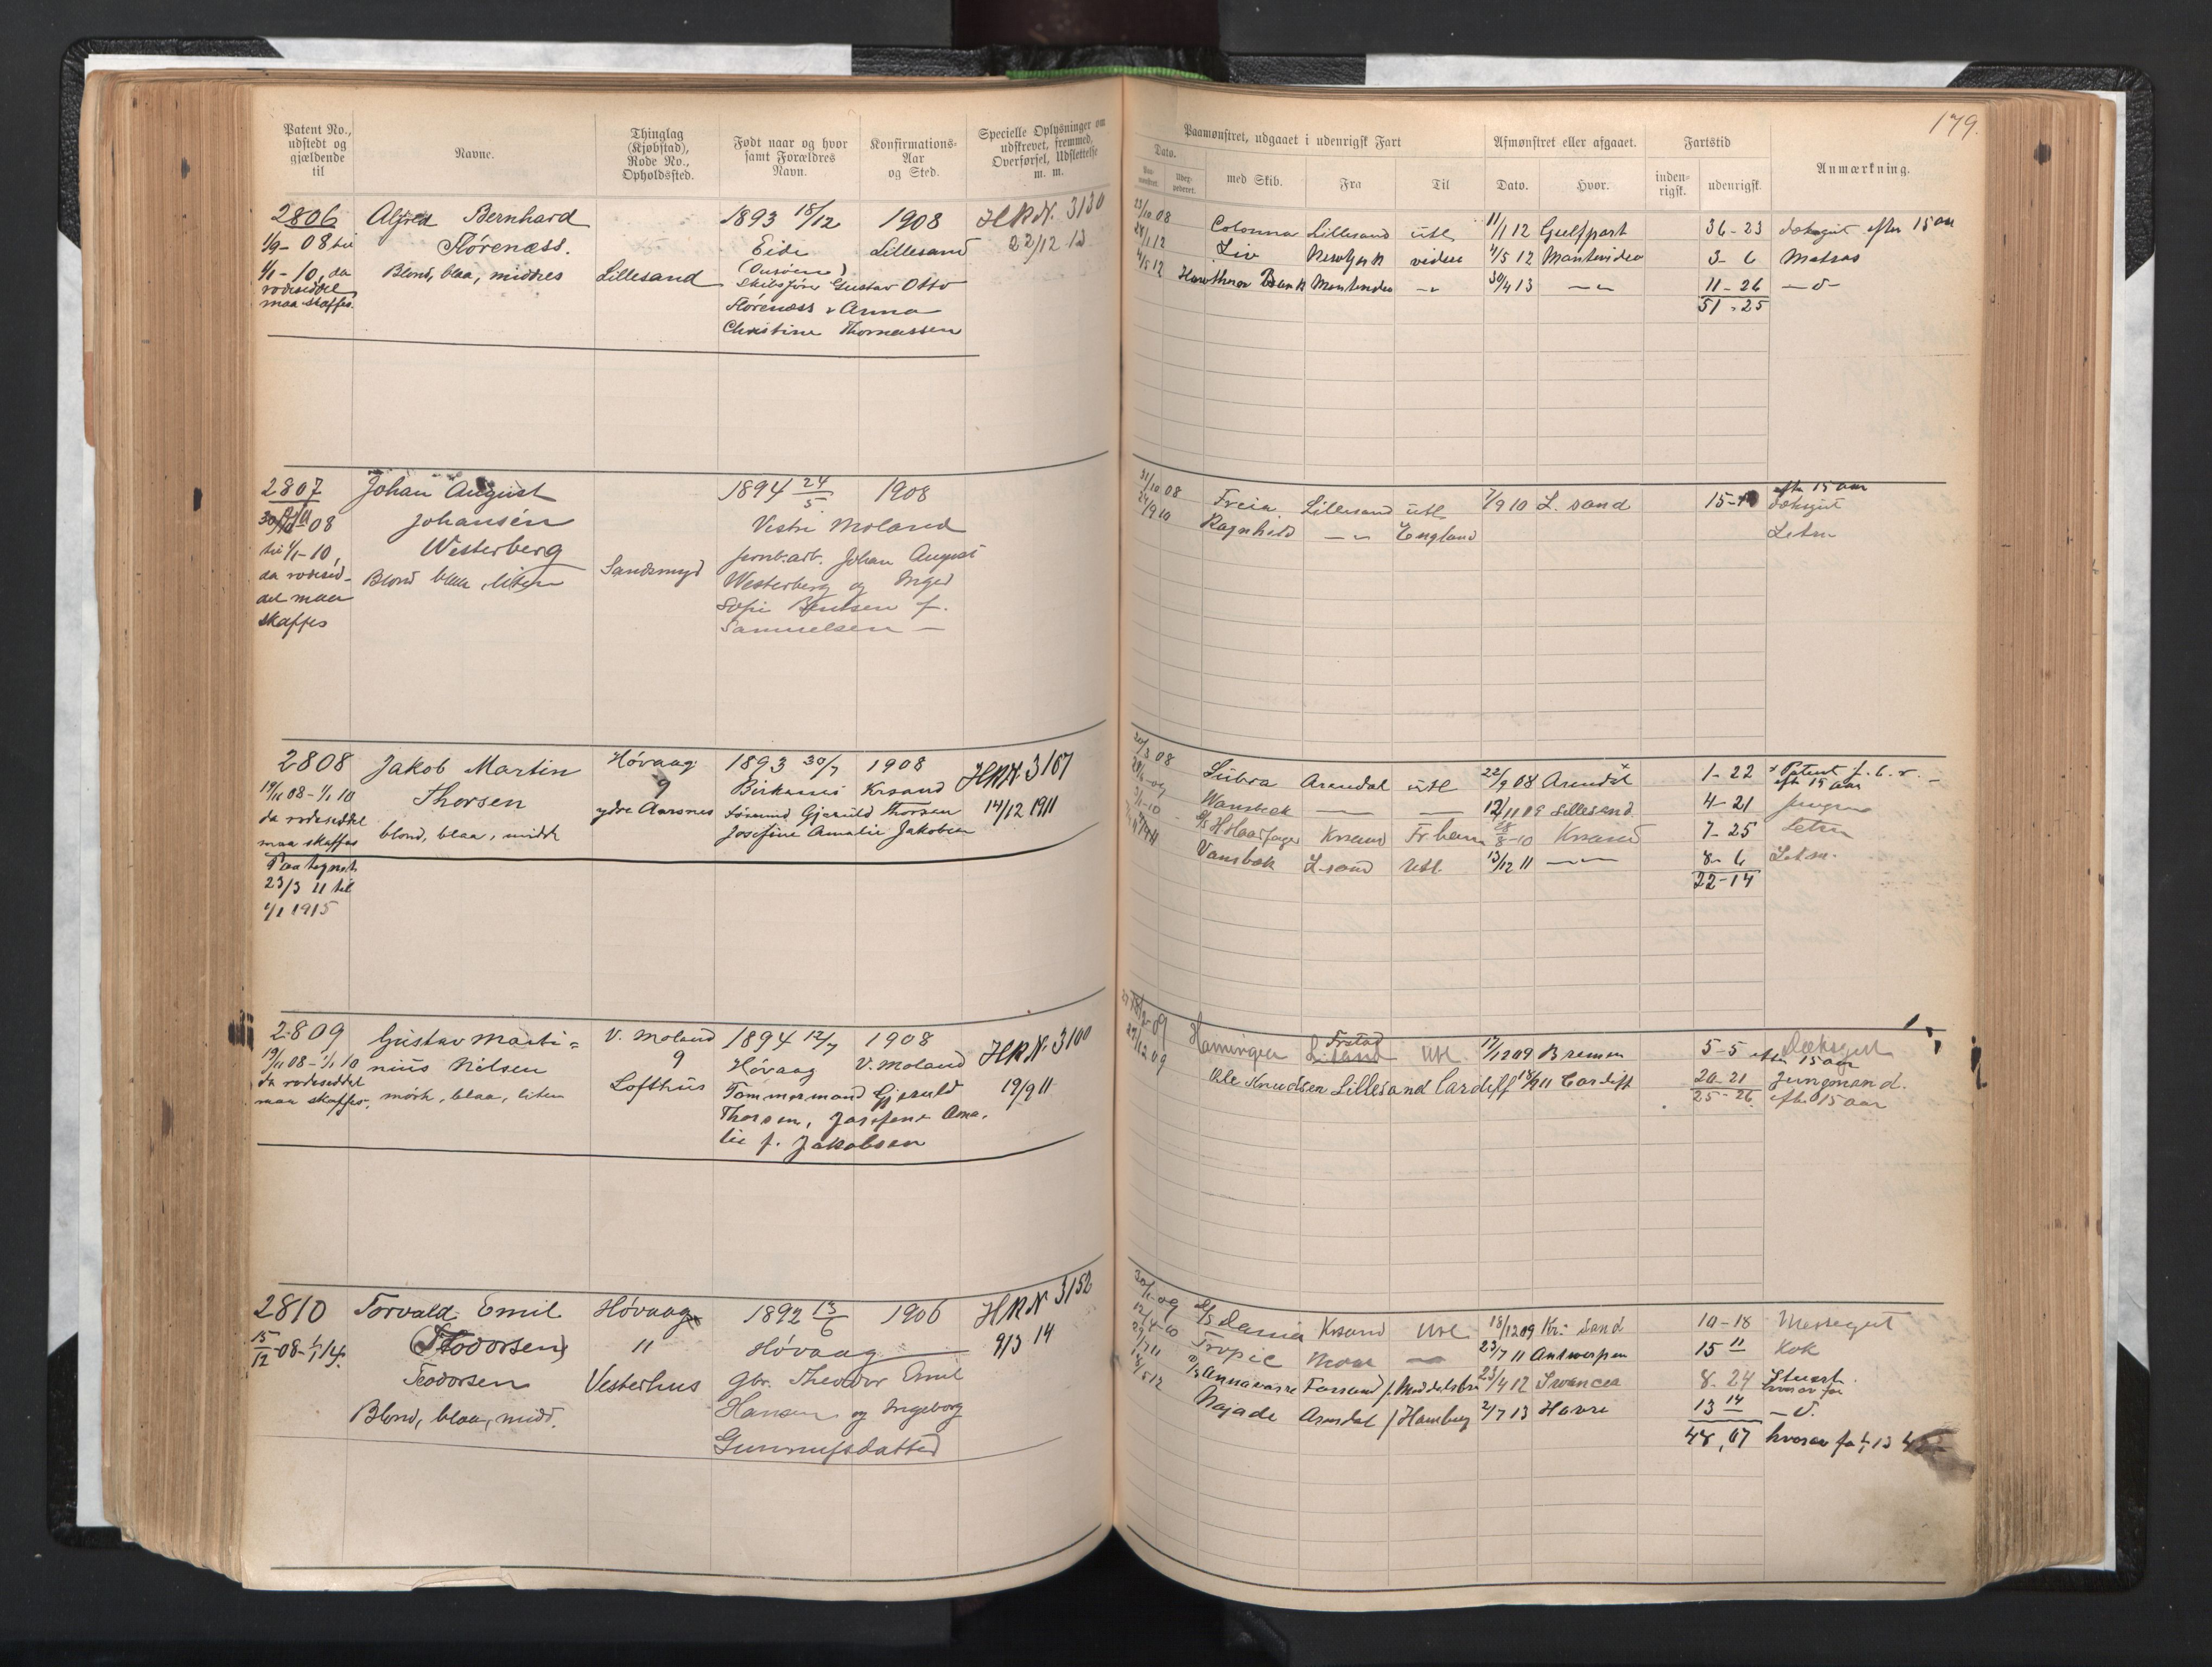 179.
Patent No., udstedt og gjældende til
Navne.
Thinglag (Kjøbstad), Rode No., Opholdssted.
Født naar og hvor samt Forældres Navn.
Konfirmations-Aar og Sted.
Specielle Oplysninger om udskrevet, fremmed, Overførsel, Udslettelse m. m.
Paamønstret, udgaaet i udenrigsk Fart
Afmønstret eller afgaaet.
Fartstid
Dato.
med Skib.
Fra
Til
Dato.
Hvor.
inden-rigsk.
udenrigsk.
Anmærkning.
2806 Alfred Bernhard 1893 18/12 1908 HRN. 3130
1/9-08 til Flørenæss. Eide Lillesand 22/12 13
1/1-10, da Blond, blaa, middels Lillesand
rodeseddel Skibsfører Gustav Otto
maa skaffes. Flørenæss & Anna
Christine Thomassen
23/10 08 Colonna Lillesand utl 11/1 12 Gulfport 36-23 dæksgut efter 15 aar
Liv NewYork video 4/5 12 Montevideo 3-6 Matros
4/5 12 Hawthorn Bank Montevideo 30/4 13 11-26 -d-
51-25
2807 Johan August 1894 24/5 1908
08 Johansen Vestre Moland
til 1/1-10, Westerberg Johan August
da rodesed- Blond blaa, liten Westerberg og Inger
del maa Sofie Bentsen f.
skaffes Samuelsen
31/10 08 Freia Lillesand utl 7/9 10 L.sand 15- efter 15 aar
dæksgut
24/9 10 Ragnhild England Letm
2808 Jakob Martin Høvaag 1893 30/7 1908 HRN. 3167
19/11 08-1/1 10 Thorsen 9 Birkenes Krsand 14/12 1911
da rodeseddel ydre Aarsnes Gjeruld Thorsen
maa skaffes blond, blaa, midds Josefine Amalie Jakobsen
Paategnet
23/3 11 til
1/1 1915
20/3 08 Arendal utl 22/9 08 Arendal 1-22 Patent
efter 15 aar
Wansbeck 12/11 09 Lillesand 4-21
H Haarfager Krsand 8-10 Krsand 7-25 Letm
Vansbek L-sand utl 13/12 11 8-6 Letm.
22-14
2809 Gustav Marti= V. Moland 1894 12/7 1908 HRN. 3100
19/11 08-1/1 10 nius Nilsen 9 Høvaag V. Moland 19/9 11
da rodeseddel Lofthus Tømmermand Gjeruld
maa skaffes. mørk, blaa, liten Thorsen, Josefene Ama.
lie f. Jakobsen
Fr.stad
09 L.sand utl 17/12 09 Bremen 5-5 Dæksgut
efter 15 aar
29/12 09 Ole Knudsen Lillesand Cardiff 18/9 11 Cardiff 20-21 Jungmand.
25-26 efter 15 aar
2810 Torvald Emil Høvaag 1892 13/6 1906 HRN 3152
15/12-08-1/1 14. (Teodorsen) 11 Høvaag 9/3 14
Teodorsen Vesterhus gbr. Theodor Emil
Blond, blaa, midd. Hansen og Ingeborg
Gunnufsdatter
30/1-09 D/S Dania Krsand utl 18/12 09 Kr.sand 10-18 Messegut
12/4-10 Tropic Moss 23/7 11 Antwerpen 15 11 Kok
29/7 11 Annavarre 23/4 12 Swancea 8-24 Stuert
8/5 12 Najade Arendal Hamburg 2/7 13 Havre 13 14 -d.
48,07 hvorav